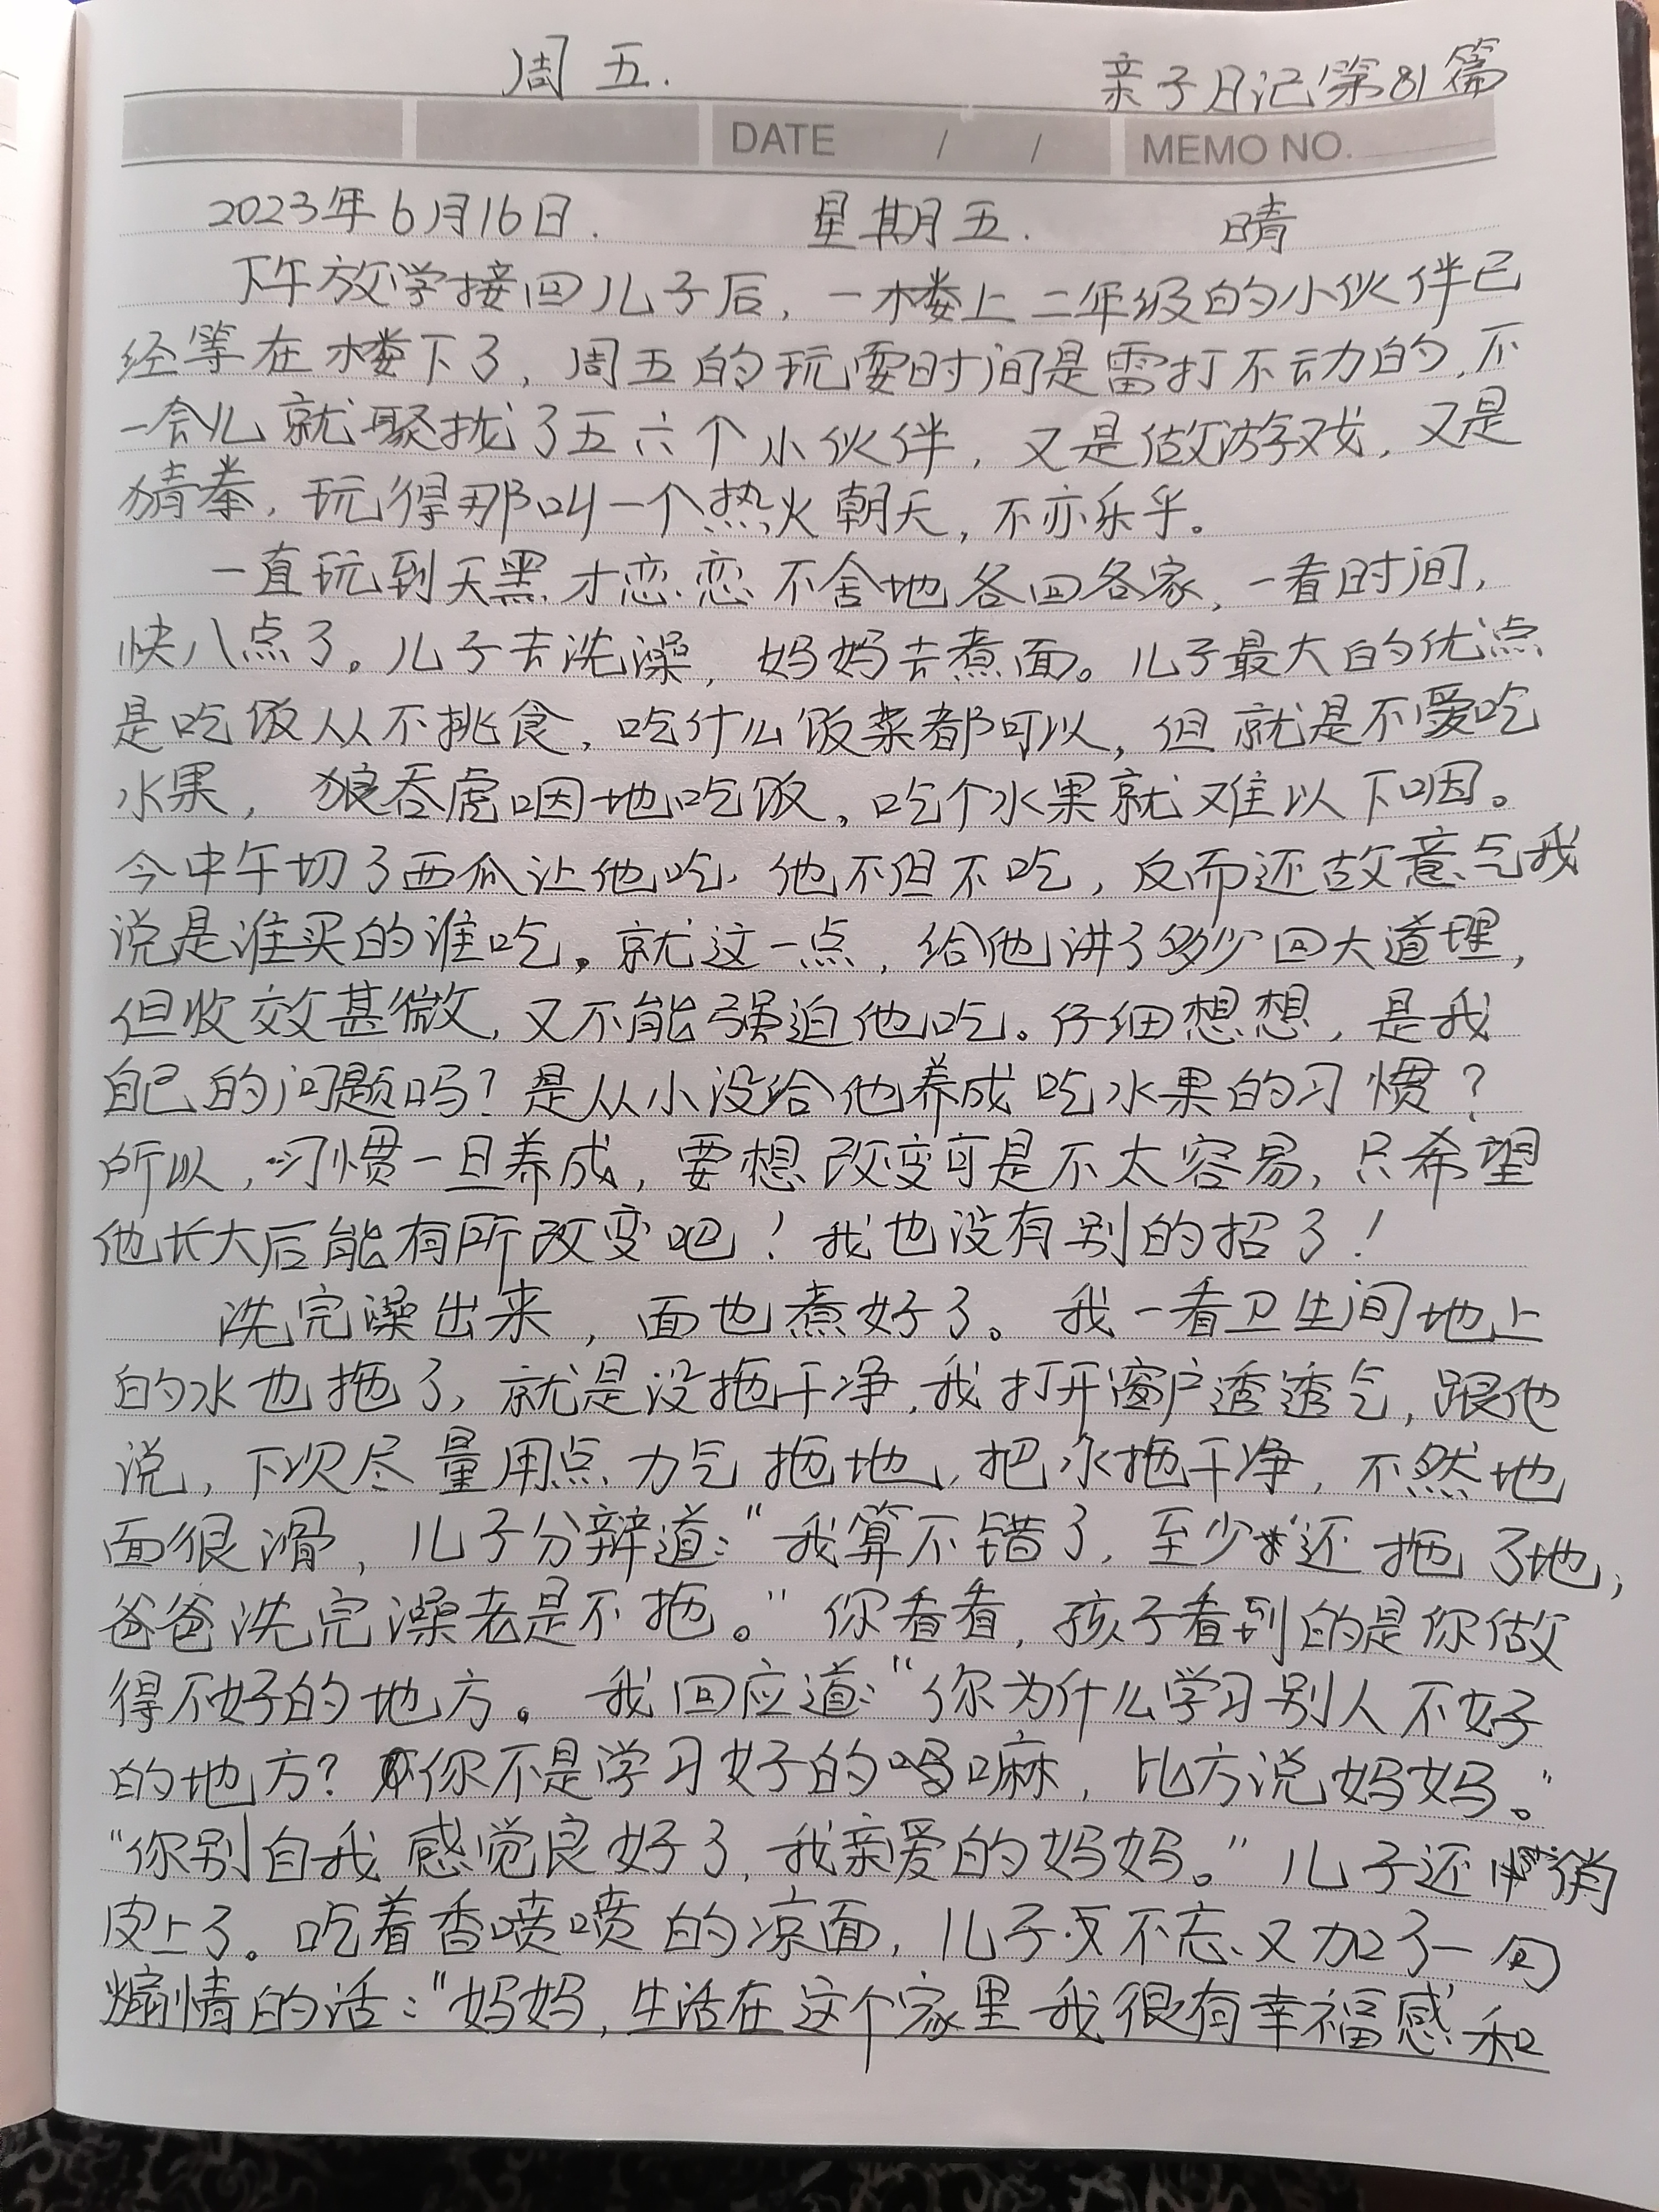 周五.
亲子日记第81篇
DATE / /
MEMO NO.
2023年6月16日. 星期五. 晴
下午放学接回儿子后,一楼上二年级的小伙伴已
经等在楼下了,周五的玩耍时间是雷打不动的,不
一会儿就聚拢了五六个小伙伴,又是做游戏,又是
猜拳,玩得那叫一个热火朝天,不亦乐乎。
一直玩到天黑才恋恋不舍地各回各家,一看时间,
快八点了。儿子去洗澡,妈妈去煮面。儿子最大的优点
是吃饭从不挑食,吃什么饭菜都可以,但就是不爱吃
水果,狼吞虎咽地吃饭,吃个水果就难以下咽。
今中午切了西瓜让他吃,他不但不吃,反而还故意气我
说是谁买的谁吃。就这一点,给他讲了多少回大道理,
但收效甚微,又不能强迫他吃。仔细想想,是我
自己的问题吗?是从小没给他养成吃水果的习惯?
所以,习惯一旦养成,要想改变可是不太容易,只希望
他长大后能有所改变吧!我也没有别的招了!
洗完澡出来,面也煮好了。我一看卫生间地上
的水也拖了,就是没拖干净,我打开窗户透透气,跟他
说,下次尽量用点力气拖地,把水拖干净,不然地
面很滑,儿子分辩道:"我算不错了,至少还拖了地,
爸爸洗完澡老是不拖。"你看看,孩子看到的是你做
得不好的地方。我回应道:"你为什么学习别人不好
的地方?你不是学习好的嘛,比方说妈妈。"
"你别自我感觉良好了,我亲爱的妈妈。"儿子还俏
皮上了。吃着香喷喷的凉面,儿子不忘又加了一句
煽情的话:"妈妈,生活在这个家里我很有幸福感和